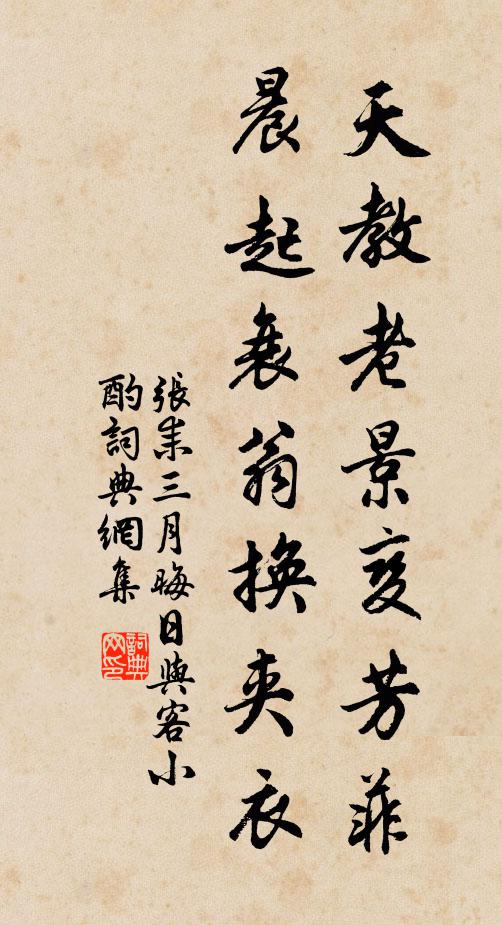 天教老景变芳菲
晨起衰翁换夹衣
張耒三月晦日與客小
酌詞典網集
詞典网印